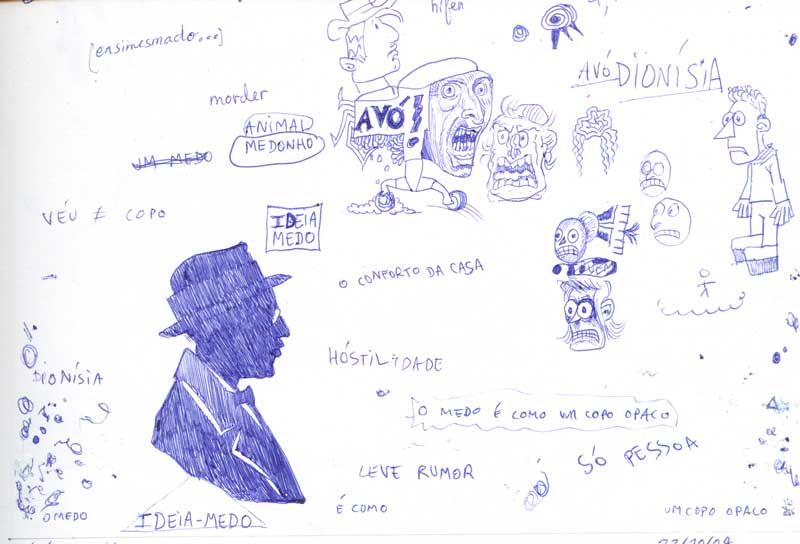 hífen
[ensimesmado...]
AVÓ DIONÍSIA
morder
AVÓ!
ANIMAL
MEDONHO
UM MEDO
VÉU ≠ COPO
IDEIA
MEDO
O CONFORTO DA CASA
HÓSTILIDADE
DIONÍSIA
O MEDO É COMO UM COPO OPACO
SÓ PESSOA
LEVE RUMOR
É COMO
UM COPO OPACO
O MEDO
IDEIA-MEDO